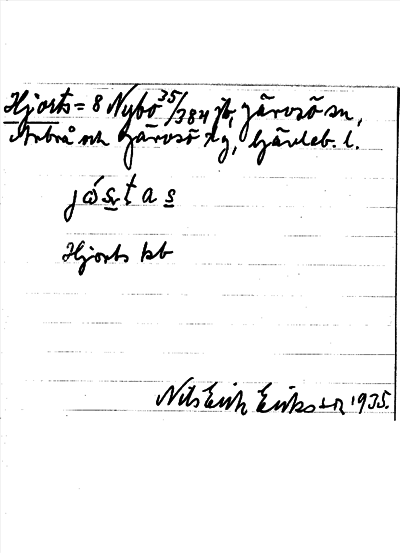 Hjorts = 8 Nybo 35/384 jb, Järvsö sn,
Arbrå och Järvsö tg, Gävleb. l.
jós̲t a s̲
Hjorts kb
Nils Erik Eriksson 1935.